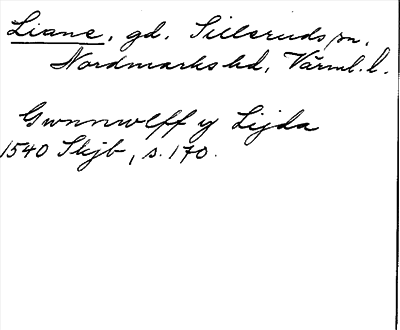 Liane, gd. Sillerudssn,
Nordmarks hd, Värml. l.
Gwnnwlff y Lijda
1540 Skjb, s. 170.